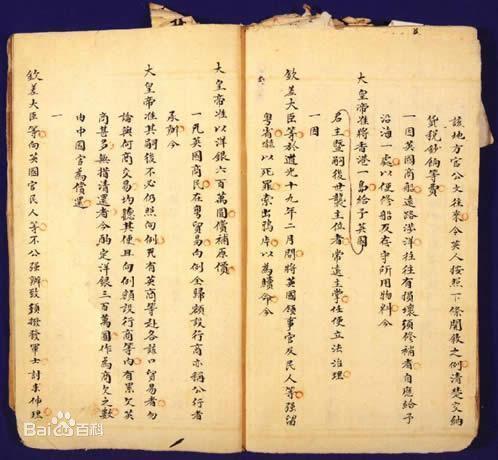 該地方官公文往來令英人按照下條開敘之例清楚交納
貨稅鈔餉等費
一因英國商船遠路涉洋往往有損壞須修補者自應給予
沿海一處以便修船及存守所用物料今
大皇帝准將香港一島給予英國
君主暨嗣後世襲主位者常遠主掌任便立法治理
一因
欽差大臣等於道光十九年二月間將英國領事官及民人等強留
粵省嚇以死罪索出鴉片以為贖命今
大皇帝准以洋銀六百萬圓償補原價
一凡英國商民在粵貿易向例全歸額設行商亦稱公行者
承辦今
大皇帝准其嗣後不必仍照向例凡有英商等赴各該口貿易者勿
論與何商交易均聽其便且向例額設行商等內有累欠英
商甚多無措清還者今酌定洋銀三百萬圓作為商欠之數
由中國官為償還
一
欽差大臣等向英國官民人等不公強辦致須撥發軍士討求伸理
Bai百科